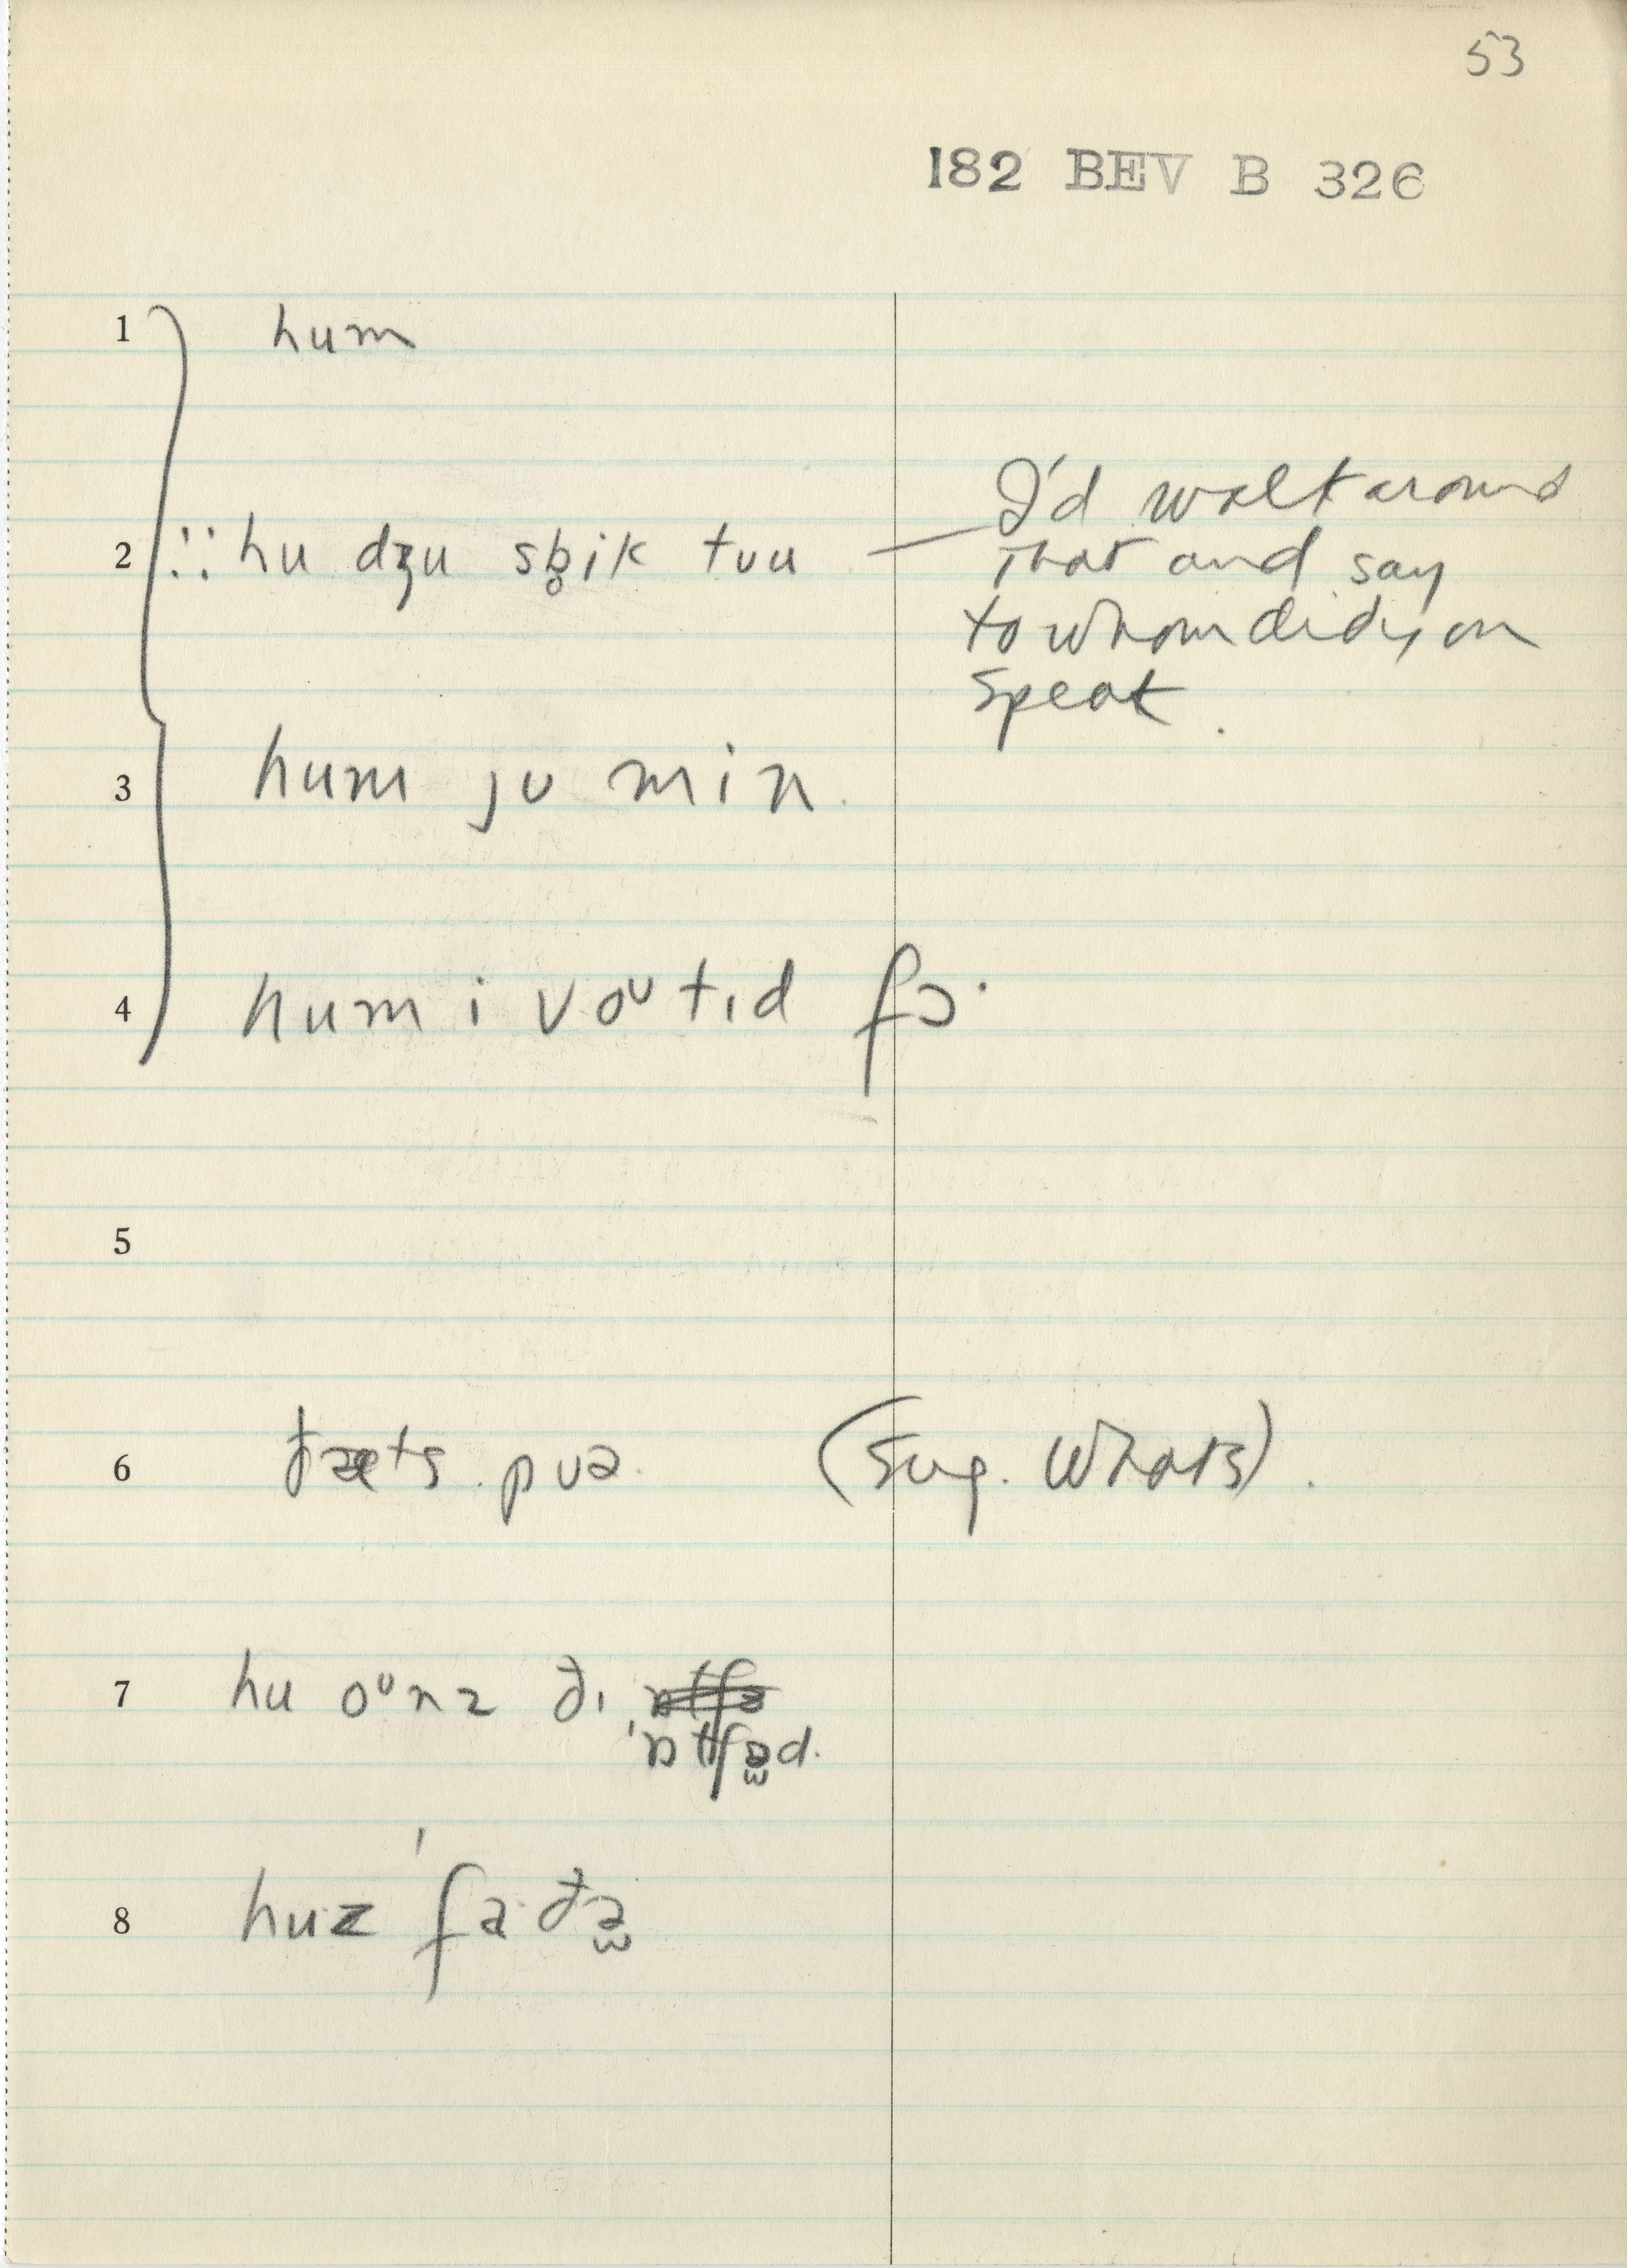 53
182 BEV B 326
1 hum
2 ∴∵ hu dʒu sb̥ik tuu — I'd walk around
that and say
to whom did you
speak.
3 hum ju min.
4 hum i voᶷtɪd fɔ·
5
6 ðæts puə. (Sug. Whats).
7 hu oᶷnz ði
'ɒtʃə̫d.
8 huz 'fɑðə̫